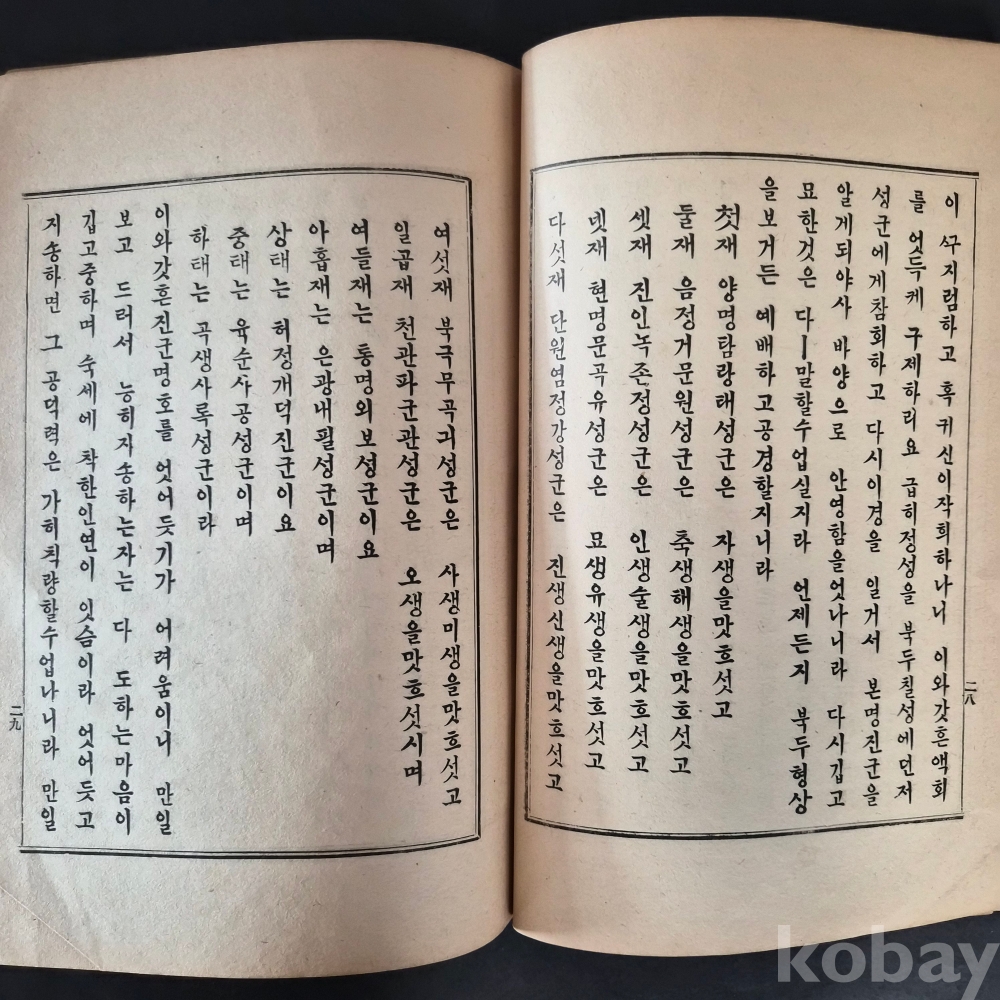 이 ᄭᅮ지럼하고 혹 귀신이작희하나니 이와갓흔액회
를 엇득케 구제하리요 급히정성을 북두칠성에던저
성군에게참회하고 다시이경을 일거서 본명진군을
알게되야사 바양으로 안영함을엇나니라 다시깁고
묘한것은 다ㅣ말할수업실지라 언제든지 북두형상
을보거든 예배하고공경할지니라
첫재 양명탐랑태성군은 자생을맛흐섯고
둘재 음정거문원성군은 축생해생을맛흐섯고
셋재 진인녹존정성군은 인생술생을맛흐섯고
넷재 현명문곡유성군은 묘생유생을맛흐섯고
다섯재 단원염정강성군은 진생신생을맛흐섯고
二八
여섯재 북극무곡긔성군은 사생미생을맛흐섯고
일곱재 천관파군관성군은 오생을맛흐섯시며
여들재는 통명외보성군이요
아홉재는 은광내필성군이며
상태는 허정개덕진군이요
중태는 육순사공성군이며
하태는 곡생사록성군이라
이와갓흔진군명호를 엇어듯기가 어려움이니 만일
보고 드러서 능히지송하는자는 다 도하는마음이
깁고중하며 숙세에 착한인연이 잇슴이라 엇어듯고
지송하면 그 공덕력은 가히칙량할수업나니라 만일
二九
kobay